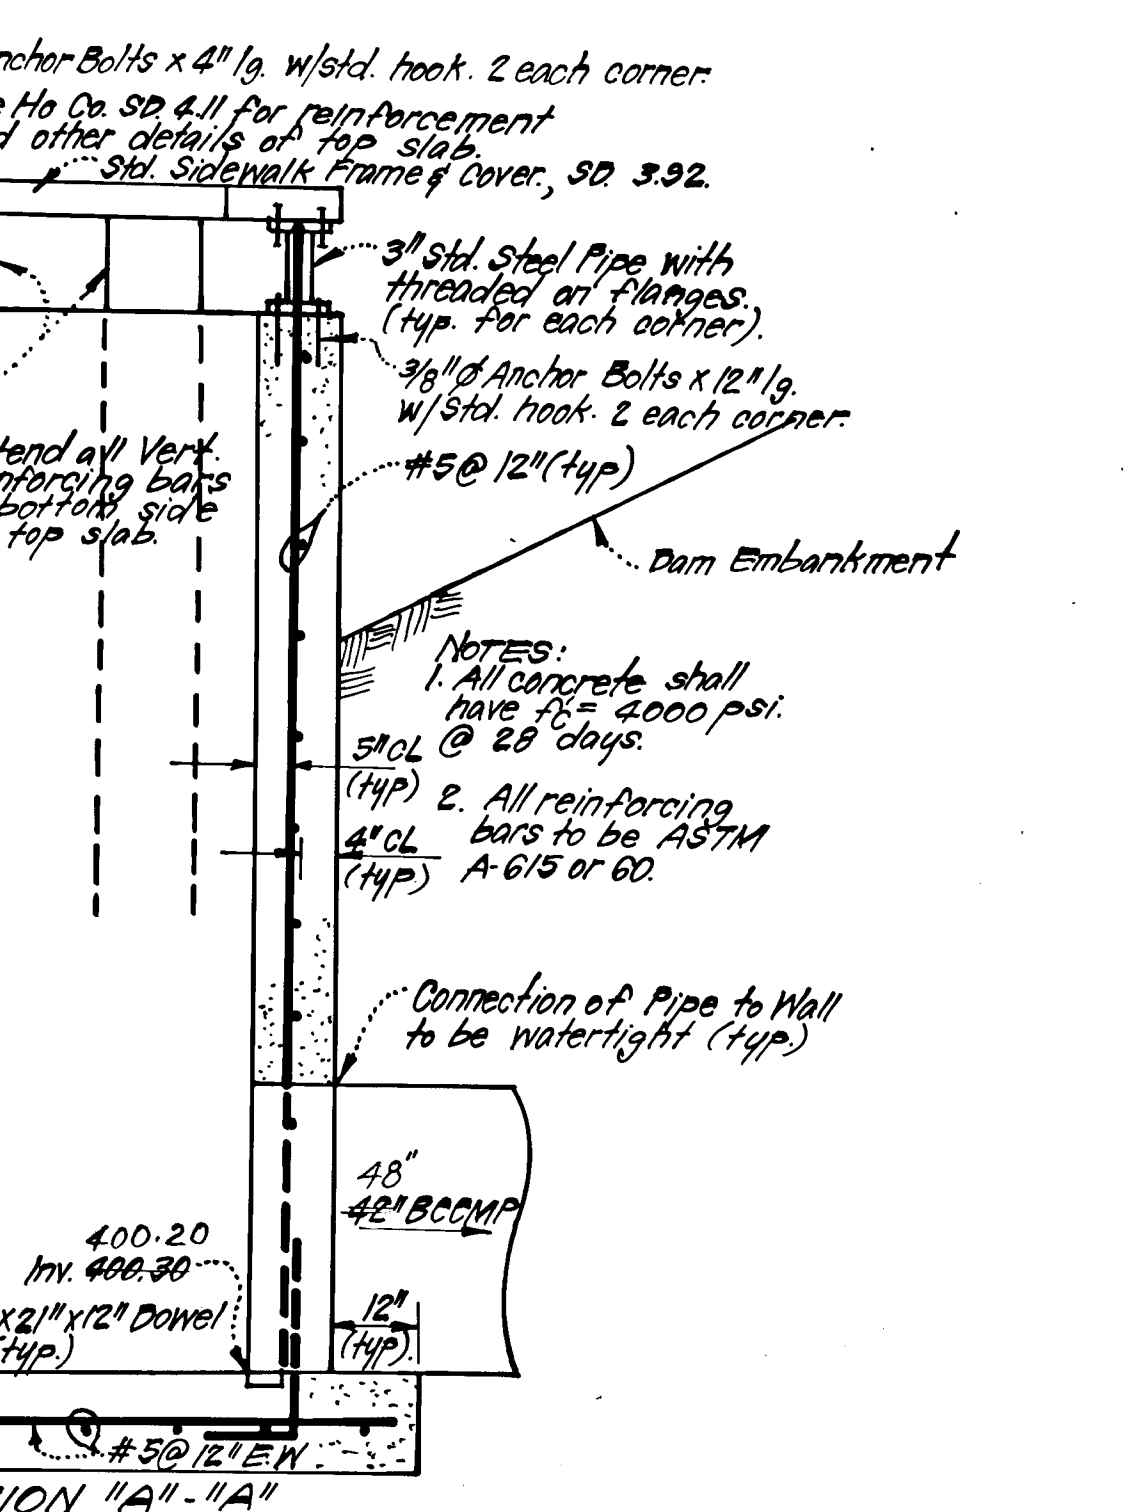 Anchor Bolts x 4" lg. w/std. hook. 2 each corner.
Ho Co. SD. 4.11 for reinforcement
other details of top slab.
Std. Sidewalk Frame & Cover., SD. 3.92.
3" Std. Steel Pipe with
threaded on flanges.
(typ. for each corner).
3/8"Ø Anchor Bolts x 12" lg.
w/Std. hook. 2 each corner.
tend all Vert.
nforcing bars
bottom side
top slab.
#5@ 12"(typ)
Dam Embankment
NOTES:
1. All concrete shall
have f'c= 4000 psi.
@ 28 days.
2. All reinforcing
bars to be ASTM
A-615 or 60.
5" CL
(typ)
4" CL
(typ)
Connection of Pipe to Wall
to be watertight (typ.)
48"
42" BCCMP
400.20
Inv. 400.30
x21"x12" Dowel
typ.)
12"
(typ).
#5@ 12" E.W
ION "A"-"A"